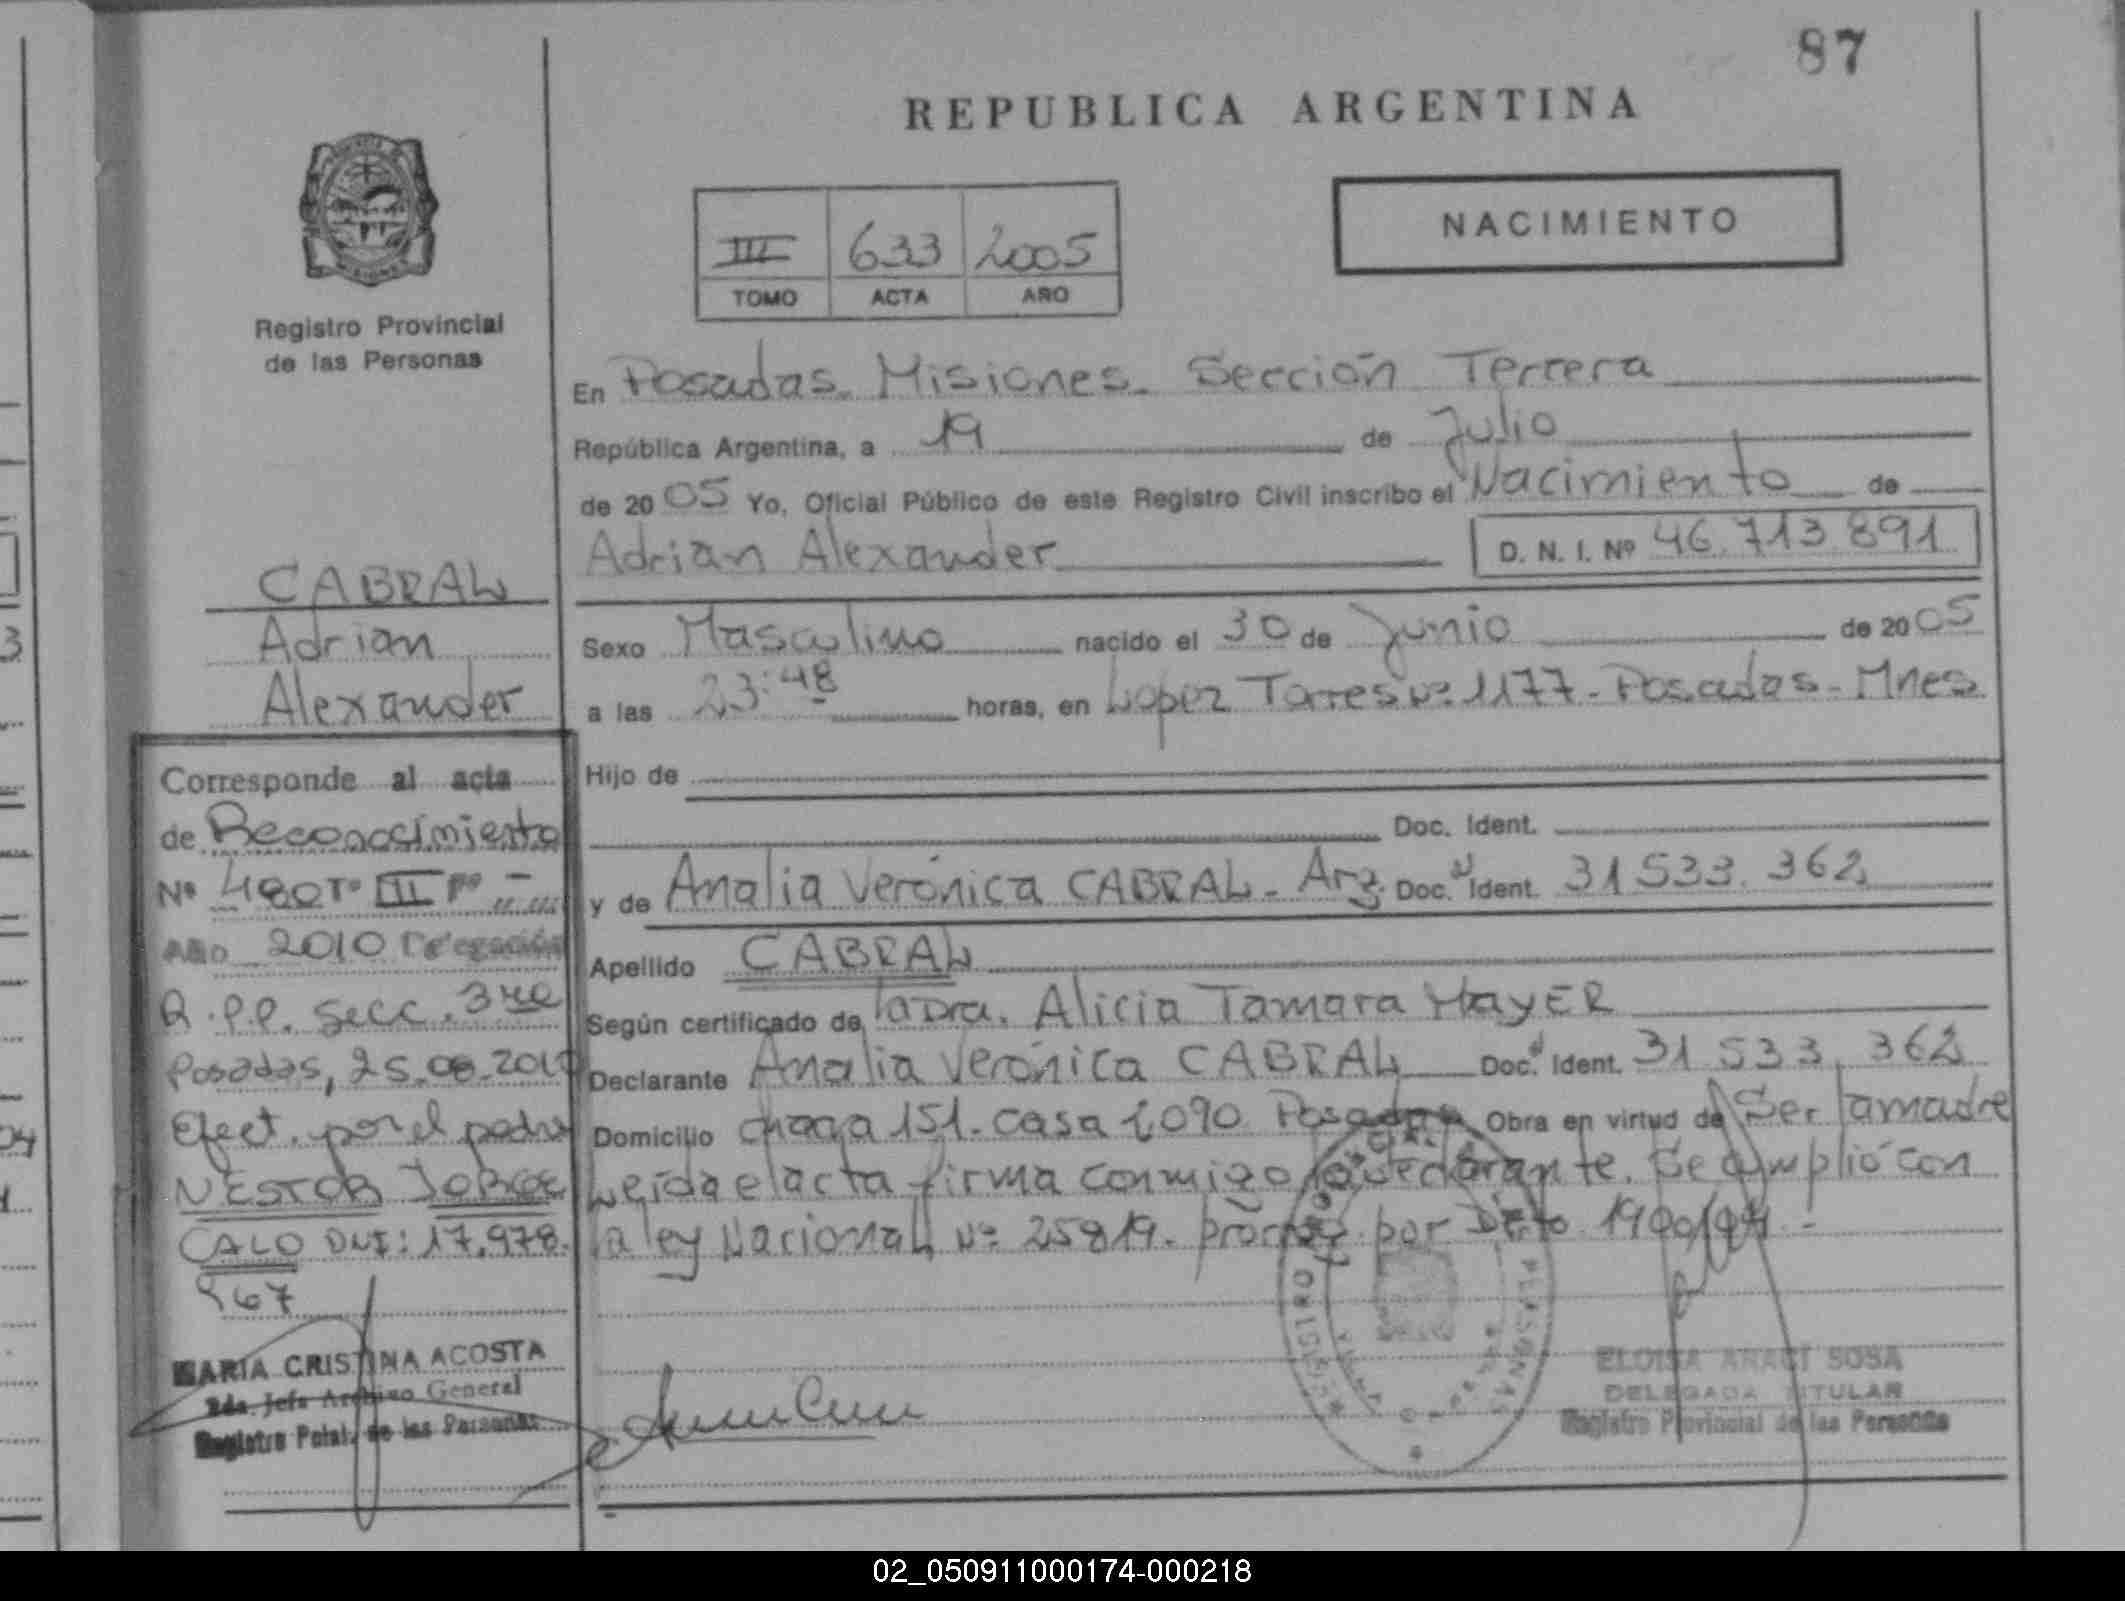 87
REPUBLICA ARGENTINA
NACIMIENTO
III 633 2005
TOMO ACTA AÑO
Registro Provincial
de las Personas
En Posadas. Misiones. Sección Tercera
República Argentina, a 19 de Julio
de 2005 Yo, Oficial Público de este Registro Civil inscribo el Nacimiento de
Adrian Alexander D. N. I. Nº 46.713.891
CABRAL
Adrian
Alexander
Sexo Masculino nacido el 30 de Junio de 2005
a las 23:48 horas, en Lopez Torres Nº 1177 - Posadas - Mnes
Hijo de
Doc. Ident.
y de Analia Verónica CABRAL - Arg. Doc. Ident. 31.533.362
Apellido CABRAL
Según certificado de la Dra. Alicia Tamara MayER
Declarante Analia Verónica CABRAL Doc. Ident. 31.533.362
Domicilio chaca 151. casa 2.090 Posadas Obra en virtud de Ser la madre
Leida el acta firma conmigo la declarante. Se cumplió con
la ley Nacional Nº 25819. por Dcto
Corresponde al acta
de Reconocimiento
Nº 480 Tº III Fº -
Año 2010 Delegación
R.P.P. Secc. 3ra
Posadas, 25.08.2010
Efect. por el padre
NESTOR JORGE
CALO DNI: 17.978.
967
MARIA CRISTINA ACOSTA
2da. Jefe Archivo General
Registro Pcial. de las Personas
ELOISA ARACI SOSA
DELEGADA TITULAR
Registro Provincial de las Personas
02_050911000174-000218